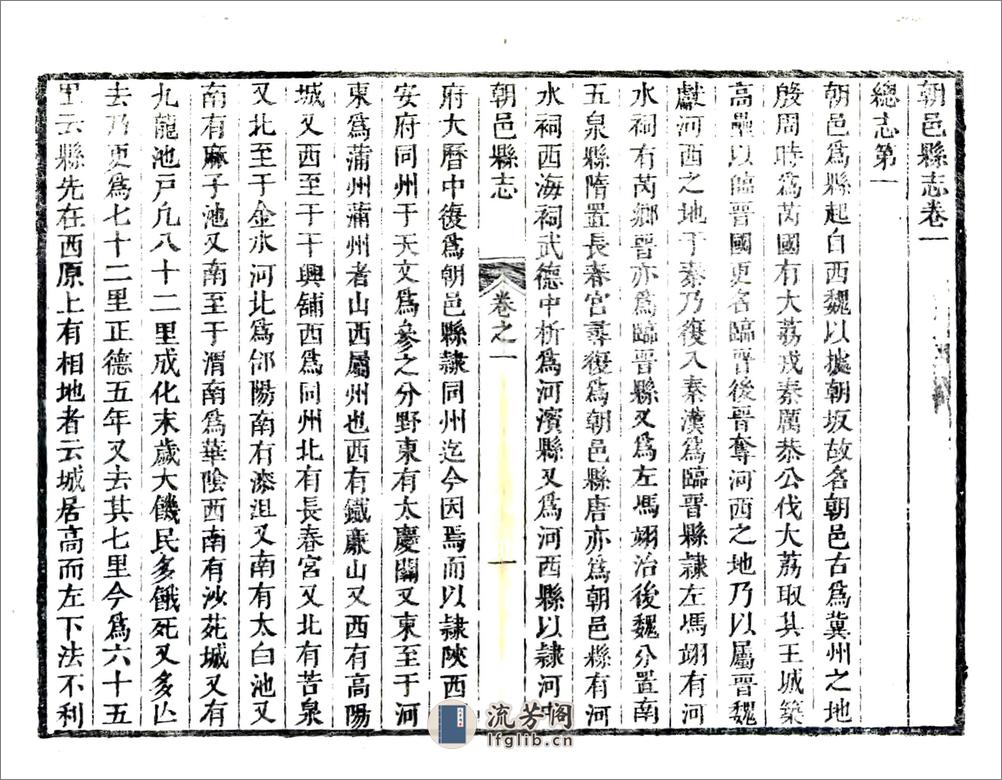 朝邑縣志卷一
總志第一
朝邑爲縣起自西魏以據朝坂故名朝邑古爲冀州之地
殷周時爲芮國有大荔戎秦厲恭公伐大荔取其王城築
高壘以臨晉國更名臨晉後晉奪河西之地乃以屬晉魏
獻河西之地于秦乃復入秦漢爲臨晉縣隷左馮翊有河
水祠有芮鄉晉亦爲臨晉縣又爲左馮翊治後魏分置南
五泉縣隋置長春宮尋復爲朝邑縣唐亦爲朝邑縣有河
水祠西海祠武德中析爲河濱縣又爲河西縣以隷河中
朝邑縣志
卷之一
一
府大曆中復爲朝邑縣隷同州迄今因焉而以隷陜西西
安府同州于天文爲參之分野東有大慶關又東至于河
東爲蒲州蒲州者山西屬州也西有鐵鐮山又西有高陽
城又西至于干興舖西爲同州北有長春宮又北有苦泉
又北至于金水河北爲郃陽南有漆沮又南有太白池又
南有麻子池又南至于渭南爲華陰西南有沙苑城又有
九龍池戸凡八十二里成化末歲大饑民多餓死又多亾
去乃更爲七十二里正德五年又去其七里今爲六十五
里云縣先在西原上有相地者云城居高而左下法不利
流芳阁
lfglib.cn